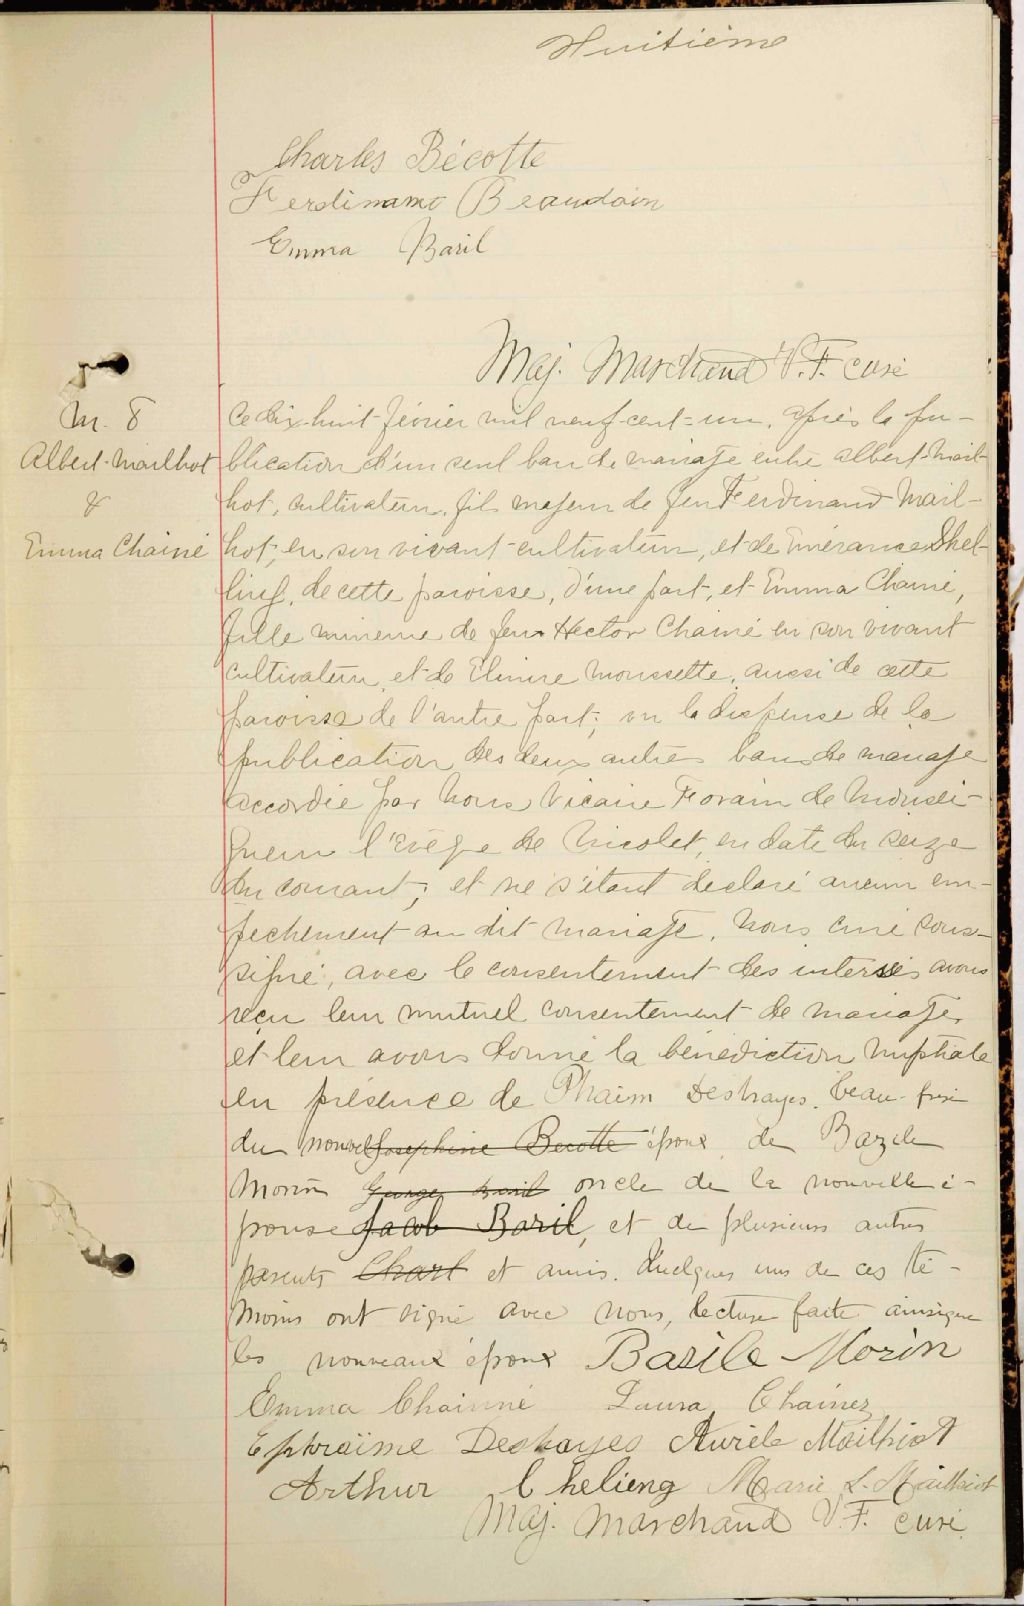 Huitième
Charles Bécotte
Ferdinand Beaudoin
Emma Baril
Maj. Marchand V.F. curé
M. 8
Albert Mailhot
&
Emma Chainé
Ce dix-huit février mil neuf-cent-un, après la pu-
blication d'un seul ban de mariage entre Albert Mail-
hot, cultivateur, fils majeur de feu Ferdinand Mail-
hot, en son vivant cultivateur, et de Émérance Shel-
ling, de cette paroisse, d'une part, et Emma Chainé,
fille mineure de feu Hector Chainé en son vivant
cultivateur, et de Elmire Moussette, aussi de cette
paroisse de l'autre part; vu la dispense de la
publication des deux autres bans de mariage
accordée par Nous Vicaire Forain de Monsei-
gneur l'Évêque de Nicolet, en date du seize
du courant; et ne s'étant déclaré aucun em-
pechement au dit mariage, Nous, curé sous-
signé, avec le consentement des intéressés avons
reçu leur mutuel consentement de mariage,
et leur avons donné la bénédiction nuptiale
en présence de Phaim Deshayes, beau-frère
du nouvel Josephine Becotte époux, de Bazile
Morin George Baril oncle de la nouvelle é-
pouse Jacob Baril, et de plusieurs autres
parents Charl et amis. Quelques uns de ces té-
moins ont signé avec nous, lecture faite ainsi que
les nouveaux époux Basile Morin
Emma Chainné Laura Chainez
Ephraïme Deshayes Aurele Mailhiot
Arthur Chelieng Marie L. Mailhiot
Maj. Marchand V.F. curé